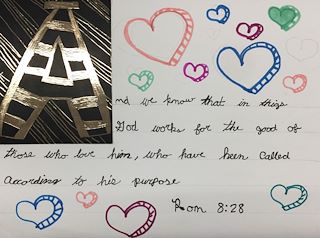 And we know that in things
God works for the good of
those who love him, who have been called
according to his purpose
Rom 8:28